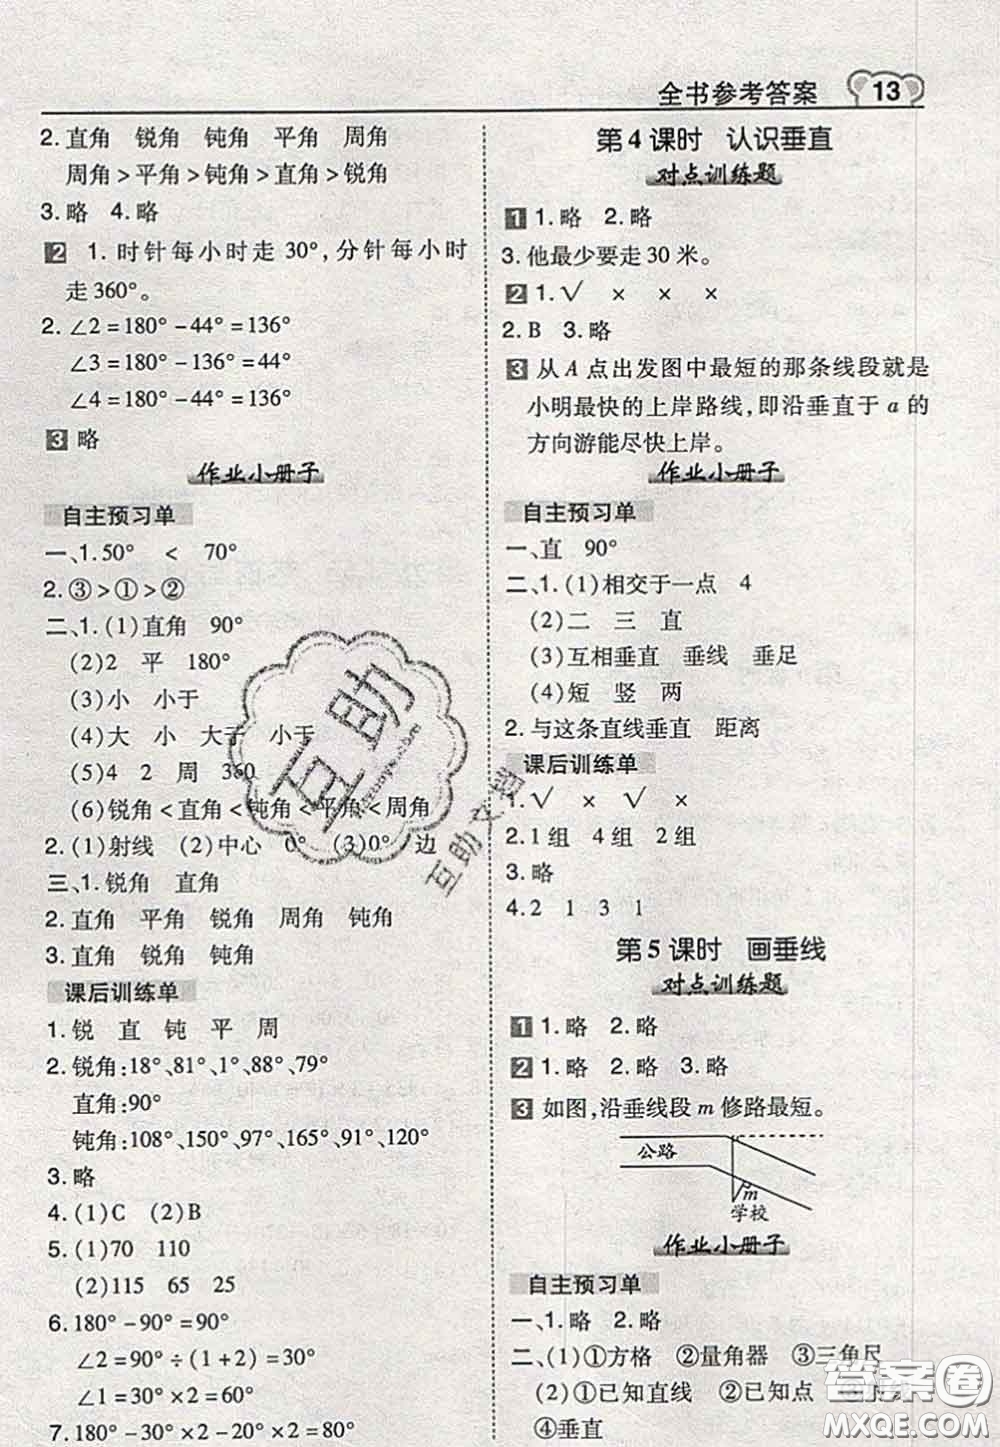 全书参考答案 13
2. 直角 锐角 钝角 平角 周角
周角>平角>钝角>直角>锐角
3. 略 4. 略
2 1. 时针每小时走 30°,分针每小时
走 360°。
2. ∠2=180°-44°=136°
∠3=180°-136°=44°
∠4=180°-44°=136°
3 略
作业小册子
自主预习单
一、1.50° < 70°
2. ③>①>②
二、1. (1)直角 90°
(2)2 平 180°
(3)小 小于
(4)大 小 大于 小于
(5)4 2 周 360
(6)锐角<直角<钝角<平角<周角
2. (1)射线 (2)中心 0° (3)0° 边
三、1. 锐角 直角
2. 直角 平角 锐角 周角 钝角
3. 直角 锐角 钝角
课后训练单
1. 锐 直 钝 平 周
2. 锐角:18°、81°、1°、88°、79°
直角:90°
钝角:108°、150°、97°、165°、91°、120°
3. 略
4. (1)C (2)B
5. (1)70 110
(2)115 65 25
6. 180°-90°=90°
∠2=90°÷(1+2)=30°
∠1=30°×2=60°
7. 180°-30°×2-20°×2=80°
第 4 课时 认识垂直
对点训练题
1 1. 略 2. 略
3. 他最少要走 30 米。
2 1. √ × × ×
2. B 3. 略
3 从 A 点出发图中最短的那条线段就是
小明最快的上岸路线,即沿垂直于 a 的
方向游能尽快上岸。
作业小册子
自主预习单
一、直 90°
二、1. (1)相交于一点 4
(2)二 三 直
(3)互相垂直 垂线 垂足
(4)短 竖 两
2. 与这条直线垂直 距离
课后训练单
1. √ × √ ×
2. 1 组 4 组 2 组
3. 略
4. 2 1 3 1
第 5 课时 画垂线
对点训练题
1 1. 略 2. 略
2 1. 略 2. 略 3. 略
3 如图,沿垂线段 m 修路最短。
公路
m
学校
作业小册子
自主预习单
一、1. 略 2. 略
二、(1)①方格 ②量角器 ③三角尺
(2)①已知直线 ②已知点 ③
④垂直
互助
互助文
答案圈
MXQE.COM